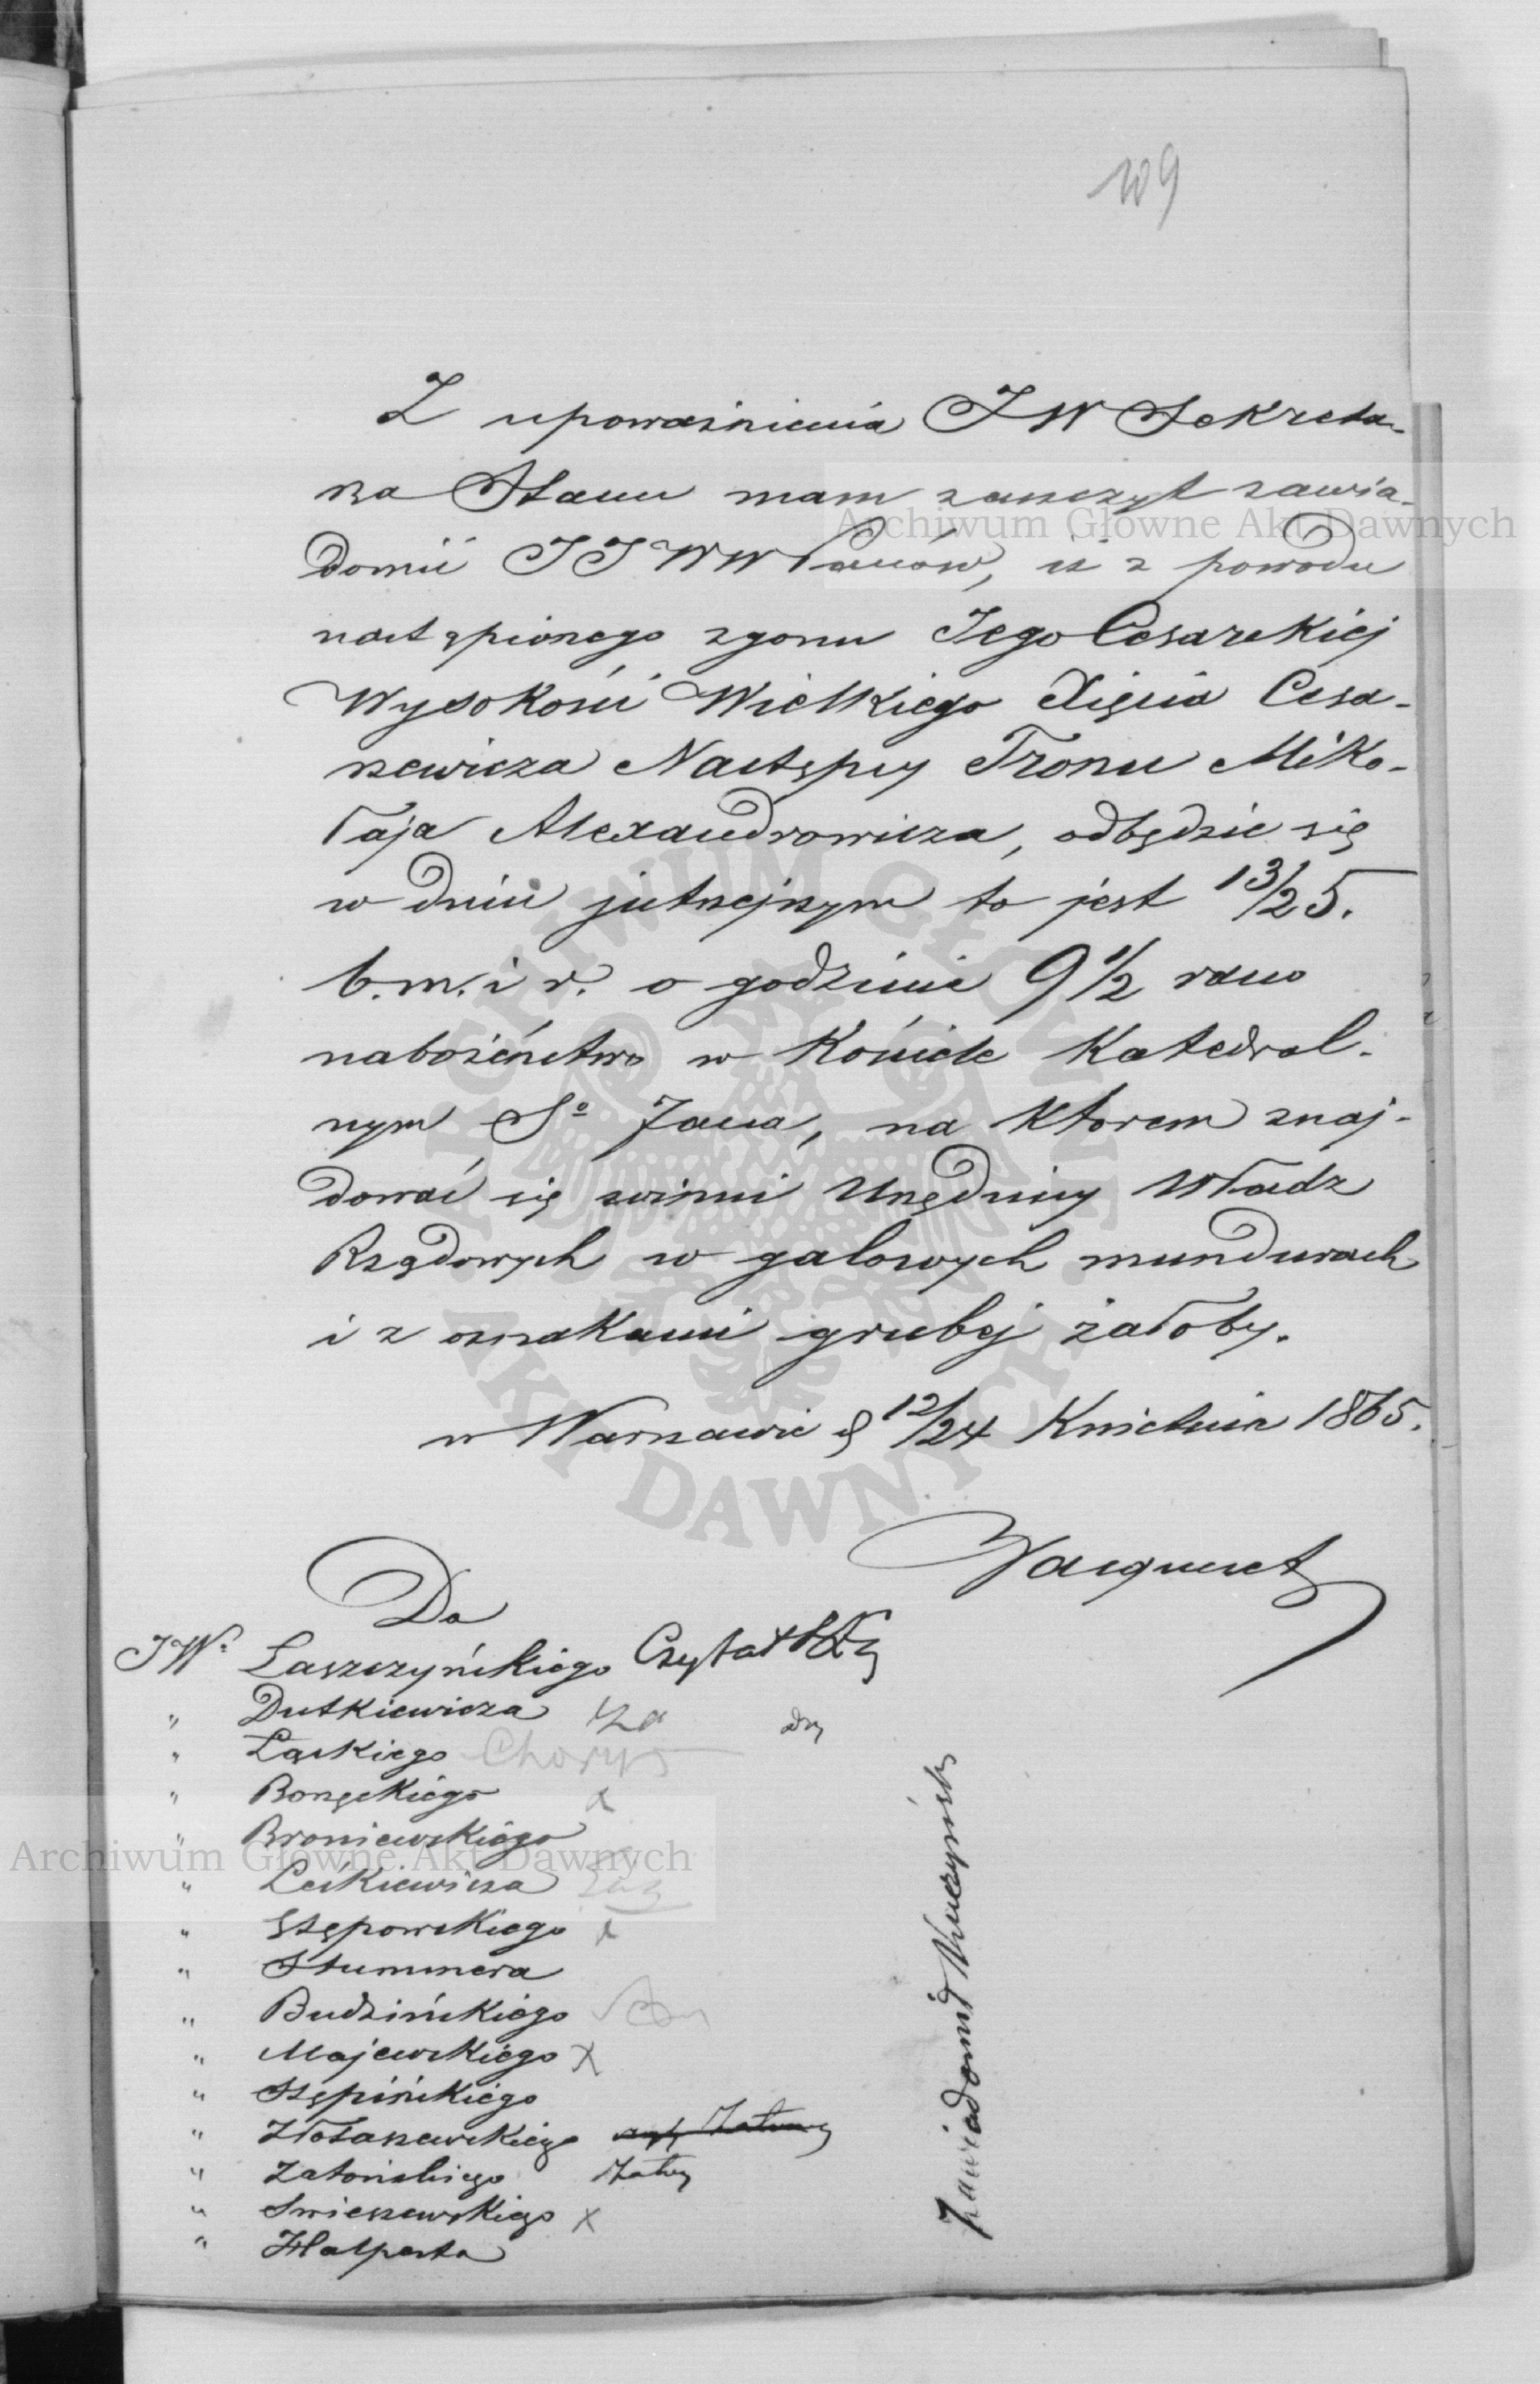 109
Z upoważnienia JW Sekreta-
rza Stanu mam zaszczyt zawia-
domić JJWW Panów, iż z powodu
nastąpionego zgonu Jego Cesarskiej
Wysokości Wielkiego Xięcia Cesa-
rzewicza Następcy Tronu Miko-
łaja Alexandrowicza, odbędzie się
w dniu jutrzejszym to jest 13/25.
b.m. i r. o godzinie 9 1/2 rano
nabożeństwo w Kościele Katedral-
nym So Jana, na ktorem znaj-
dować się winni Urzędnicy Władz
Rządowych w galowych mundurach
i z oznakami grubej żałoby.
w Warszawie d 12/24 Kwietnia 1865.
Do
JWo Łaszczyńskiego Czytał
" Dutkiewicza
" Łąskiego Chory
" Borzęckiego
" Broniewskiego
" Leśkiewicza
" Stępowskiego x
" Stummera
" Budzińskiego
" Majewskiego x
" Stępińskiego
" Złotaszewskiego
" Zatońskiego
" Swieszewskiego x
" Halperta
Zawiadomił Kuczyński
Archiwum Główne Akt Dawnych
Archiwum Główne Akt Dawnych
ARCHIWUM GŁÓWNE
AKT DAWNYCH